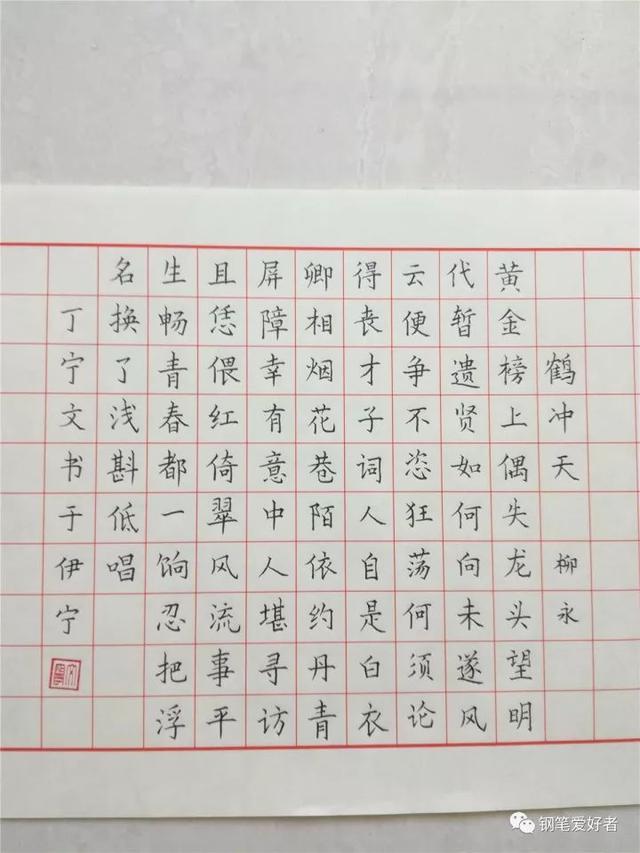 鹤冲天 柳永
黄金榜上偶失龙头望明
代暂遗贤如何向未遂风
云便争不恣狂荡何须论
得丧才子词人自是白衣
卿相烟花巷陌依约丹青
屏障幸有意中人堪寻访
且恁偎红倚翠风流事平
生畅青春都一饷忍把浮
名换了浅斟低唱
丁宁文书于伊宁
钢笔爱好者